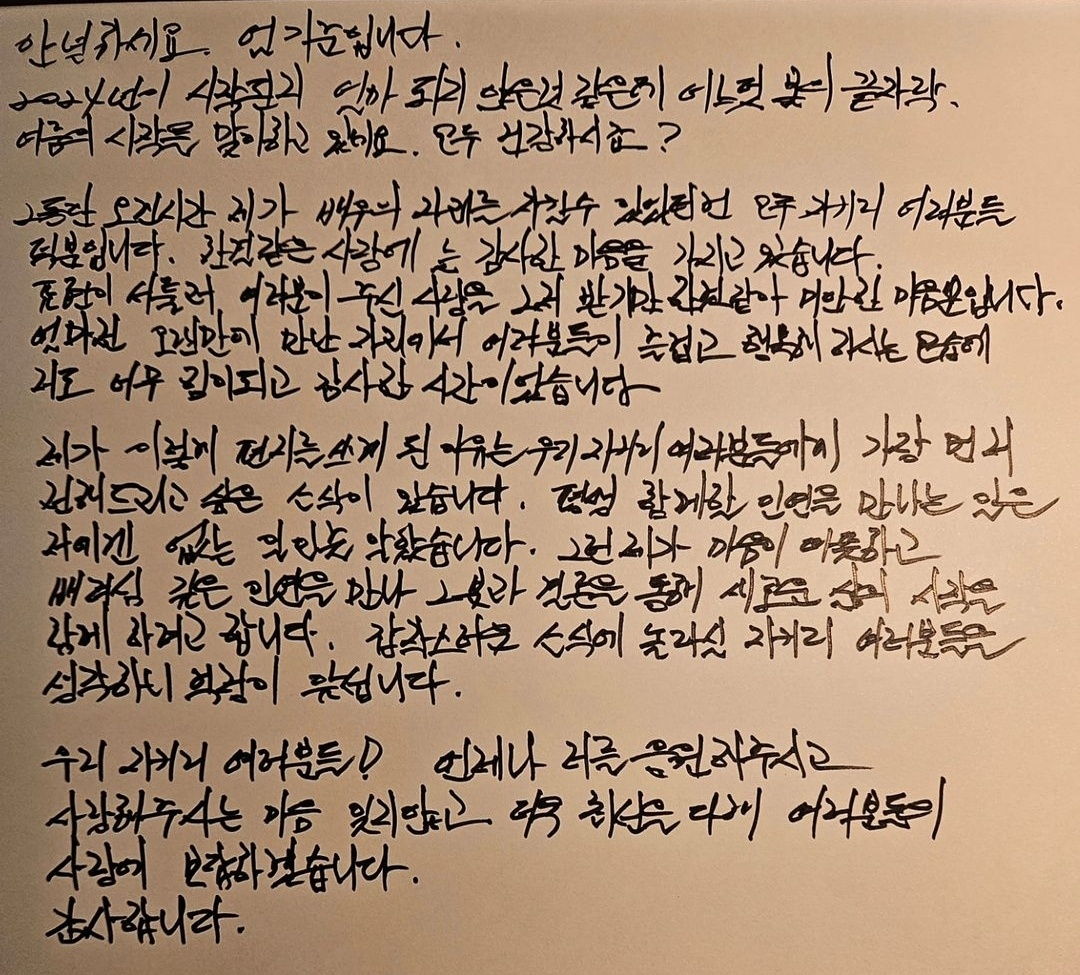 안녕하세요. 엄기준입니다.
2024년이 시작된지 얼마 되지 않은것 같은데 어느덧 봄의 끝자락.
여름의 시작을 맞이하고 있네요. 모두 건강하시죠?
그동안 오랜시간 제가 배우의 자리를 지킬수 있었던건 모두 자키리 여러분들
덕분입니다. 한결같은 사랑에 늘 감사한 마음을 가지고 있습니다.
표현이 서툴러 여러분이 주신 사랑을 그저 받기만 한것같아 미안한 마음뿐입니다.
얼마전 오랜만에 만난 자리에서 여러분들이 즐겁고 행복해 하시는 모습에
저도 너무 힘이되고 감사한 시간이었습니다
제가 이렇게 편지를 쓰게 된 이유는 우리 자키리 여러분들에게 가장 먼저
전해드리고 싶은 소식이 있습니다. 평생 함께할 인연을 만나는 일은
저에겐 없다는 일인줄 알았습니다. 그런 제가 마음이 따뜻하고
배려심 깊은 인연을 만나 그분과 결혼을 통해 새로운 삶의 시작을
함께 하려고 합니다. 갑작스러운 소식에 놀라실 자키리 여러분들을
생각하니 걱정이 듭니다.
우리 자키리 여러분들! 언제나 저를 응원해주시고
사랑해주시는 마음 잊지않고 더욱 최선을 다해 여러분들의
사랑에 보답하겠습니다.
감사합니다.